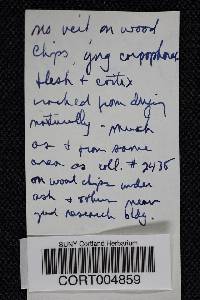 no veil on wood
chips, young carpophores
flesh + cortex
cracked from drying
naturally - much
as + from same
area as coll. # 2435
on wood chips under
ash + others near
research bldg.
SUNY Cortland Herbarium
CORT004859